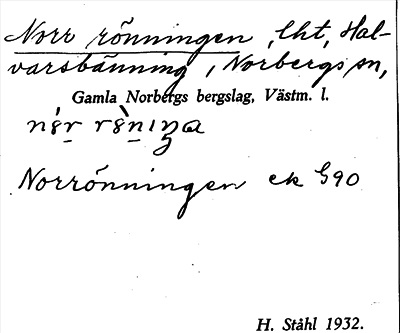 Norr rönningen, lht, Hal-
varsbänning, Norbergs sn,
Gamla Norbergs bergslag, Västm. l.
Norrönningen ek G90
H. Ståhl 1932.